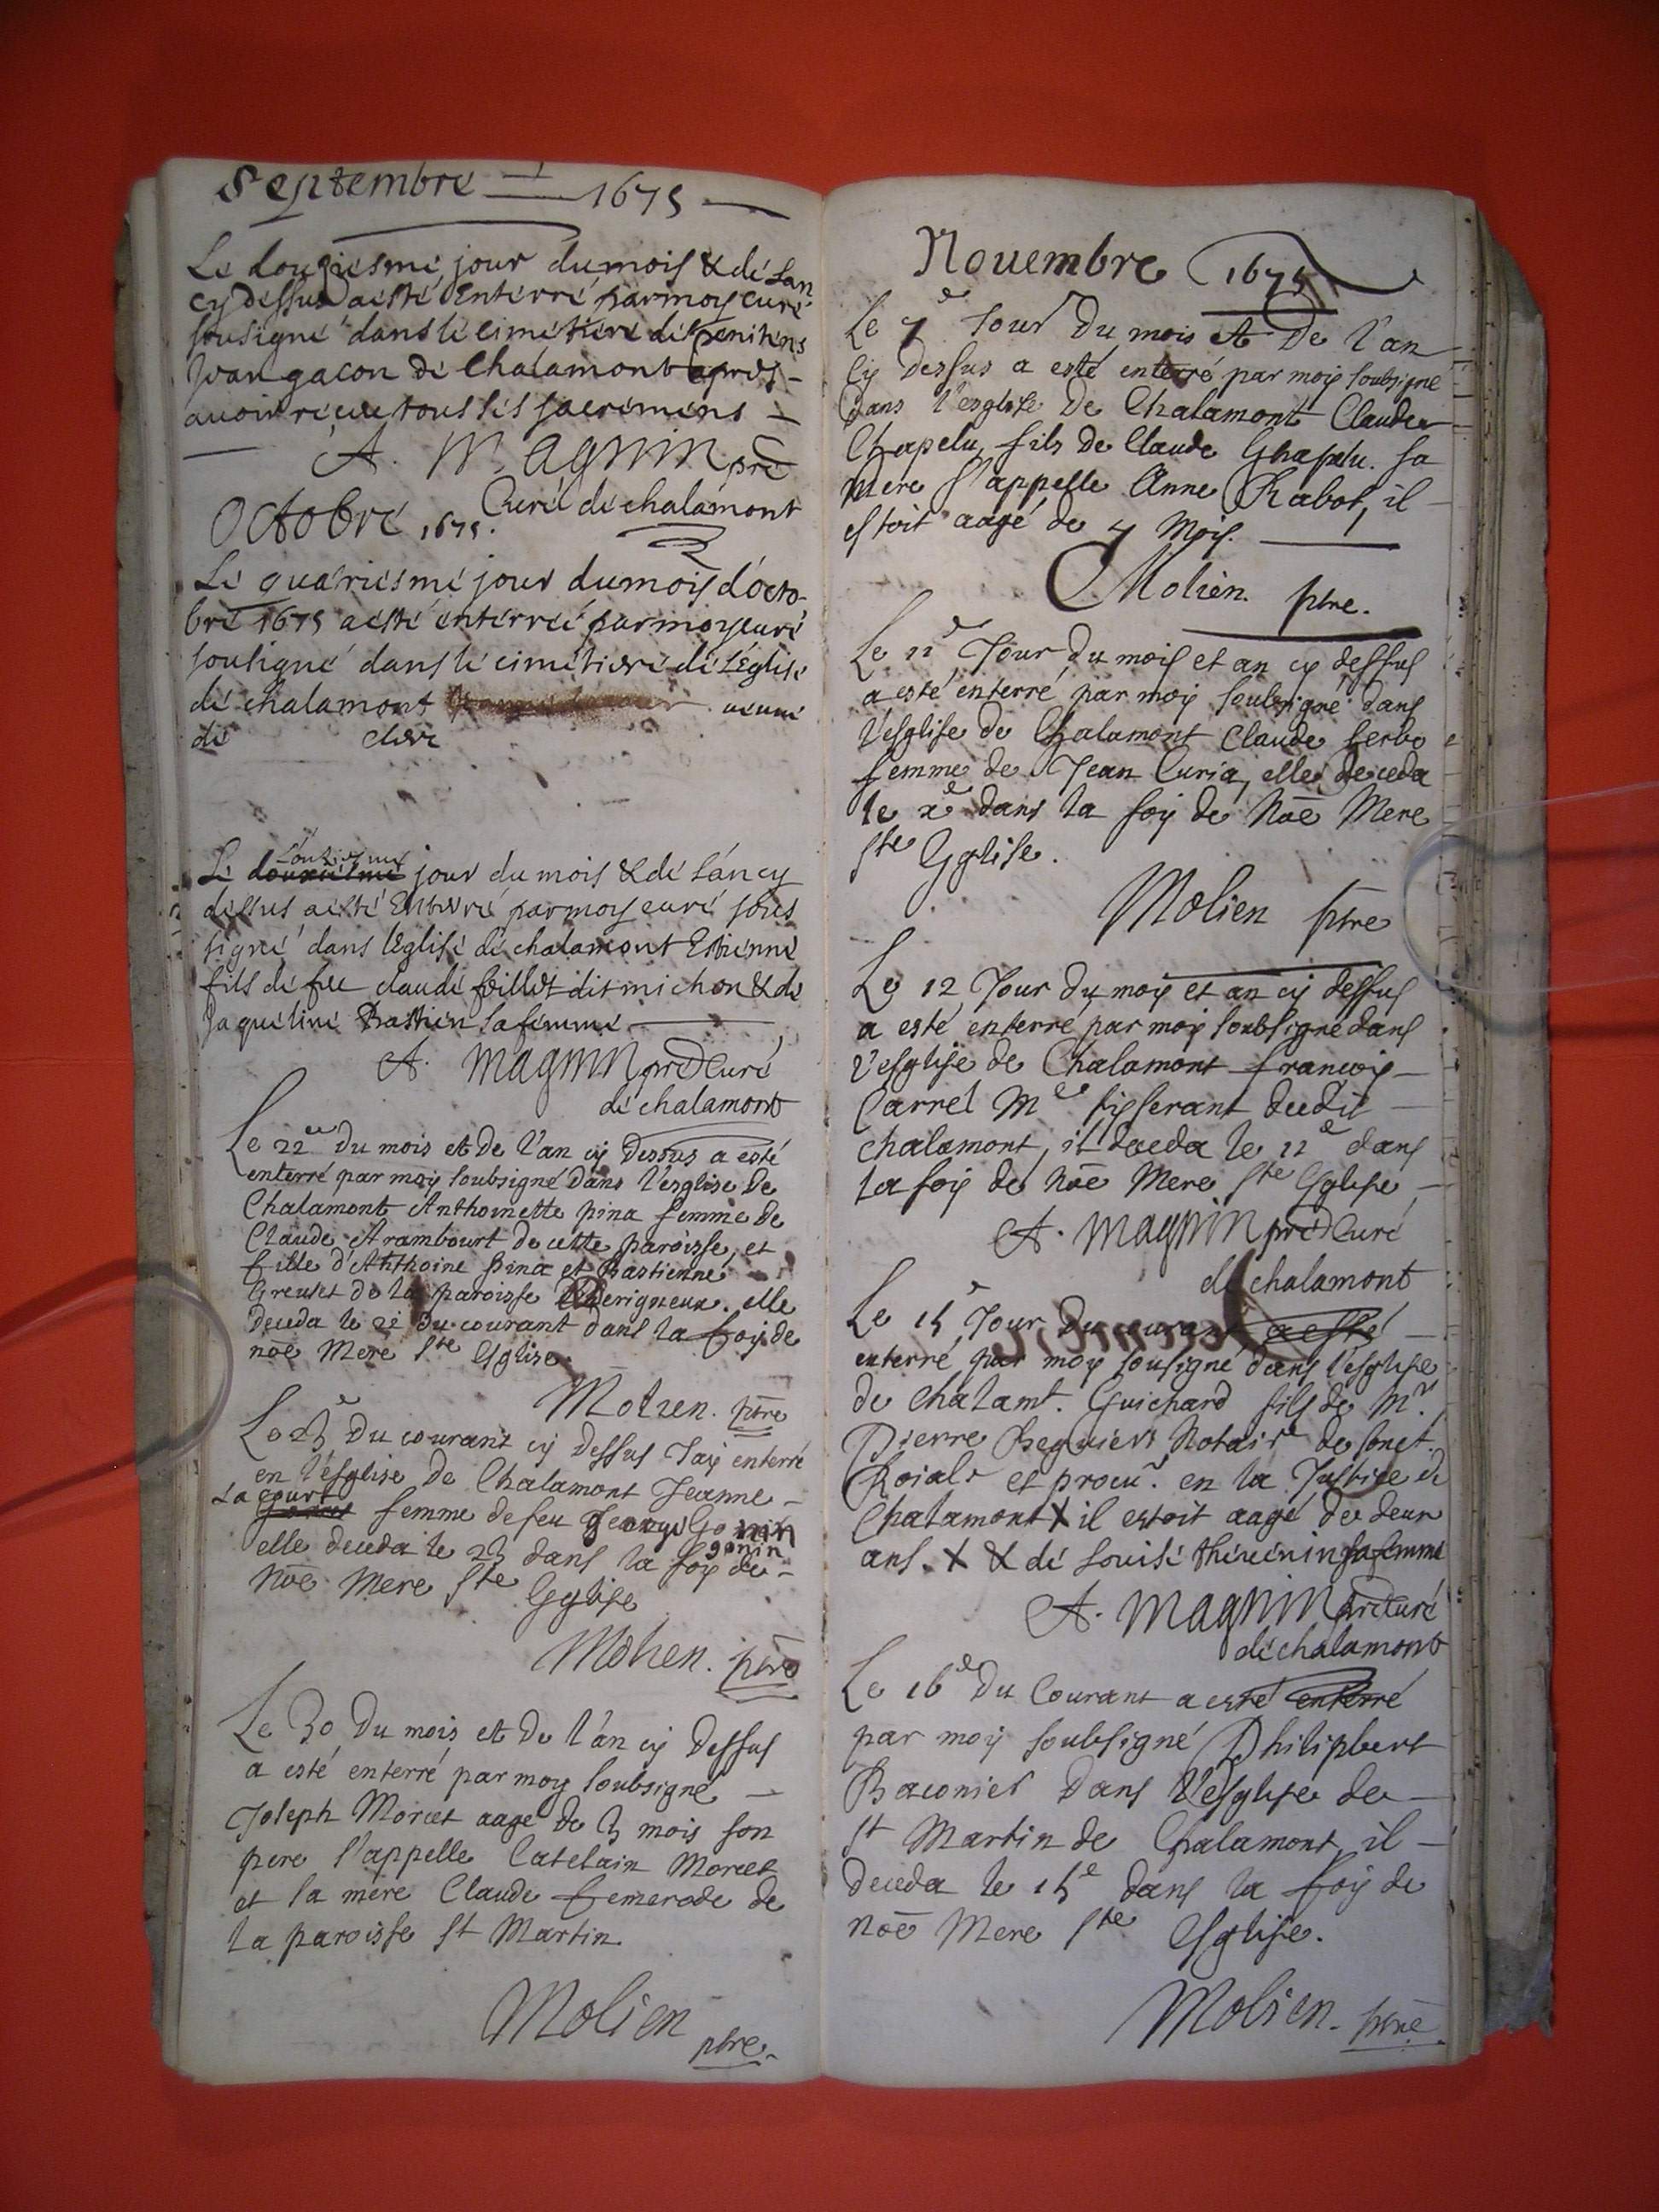 Septembre 1675
Le douziesme jour du mois & de lan
cy dessus a esté Enterré par moy curé
sousigné dans le cimetiere des penitens
Jean gacon de Chalamont apres
avoir receu tous les sacremens
A. Magnin pre
Curé de chalamont
Octobre 1675.
Le quatriesme jour du mois d'octo-
bre 1675 a esté enterreé par moy curé
sousigné dans le cimetiere de l'Eglise
de chalamont
de
L'onziesme
Le douxiesme jour du mois & de l'an cy
dessus a esté Enterré par moy curé sous
signé dans l'Eglise de chalamont Estienne
fils de feu claude foillet dit michon & de
Jaqueline Bastien sa femme
A. Magnin pre Curé
de chalamont
Le 22e du mois et de l'an cy dessus a esté
enterré par moy soubsigné dans l'esglise de
Chalamont Anthoinette pina femme de
Claude Arambourt de cette paroisse, et
fille d'Anthoine pina et Bastienne
Greuset de la paroisse . elle
deceda le 21 du courant dans la foy de
noē Mere Ste Esglise.
Molien. ptre
Le 25e du courant cy dessus J'ay enterré
en l'esglise de Chalamont Jeanne
La court
femme de feu George Gonin
gonin
elle deceda le 23 dans la foy de
Noē Mere Ste Esglise
Molien. ptre
Le 30 du mois et de l'an cy dessus
a esté enterré par moy soubsigné
Joseph Morcet aage de 3 mois son
pere s'appelle Catelain Morcet
et sa mere Claude femerode de
la paroisse St Martin
Molien ptre.
Nouembre 1675
Le 7e Jour du mois et De l'an
Cy dessus a esté enterré par moy soubsigné
dans l'esglise De Chalamont Claude
Chapelu fils de Claude Chapelu. sa
mere s'appelle Anne Rabot, il
estoit aagé de 7 Mois.
Molien. ptre.
Le 11e Jour du mois et an cy dessus
a esté enterré par moy soubsigné dans
l'esglise de Chalamont Claude ferbe
femme de Jean Curia, elle deceda
le xe dans la foy de Noē Mere
Ste Esglise.
Molien ptre
Le 12 Jour du moys et an cy dessus
a esté enterré par moy soubsigné dans
l'esglise de Chalamont francoys
Carrel Me tisserant decdit
chalamont, il deceda le 11e dans
la foy de noē Mere Ste Esglise
A. Magnin pre Curé
de chalamont
Le 15e Jour du courant a esté
enterré par moy sousigné dans l'esglise
de Chalamt. Guichard fils de Mr.
Pierre Beguier Notaire de
Roiale et procur. en la Justice de
Chalamont X il estoit aagé de deux
ans. X & de Louise thevenin sa femme
A. Magnin pre Curé
de chalamont
Le 16e du Courant a esté enterré
par moy soubsigné Philipbert
Baconier dans l'Esglise de
St Martin de Chalamont, il
deceda le 15e dans la foy de
noē Mere Ste Esglise.
Molien. ptre